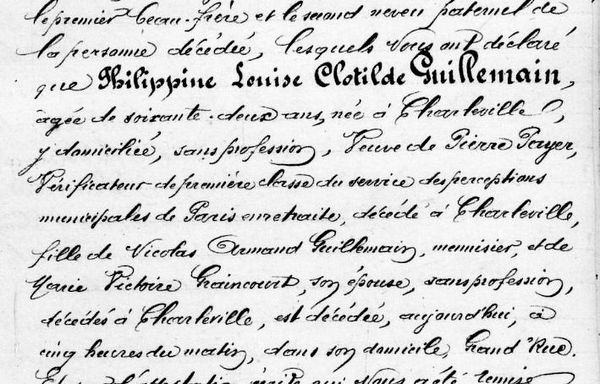 le premier beau-frère et le second neveu paternel de
la personne décédée, lesquels Nous ont déclaré
que Philippine Louise Clotilde Guillemain,
âgée de soixante-deux ans, née à Charleville,
y domiciliée, sans profession, Veuve de Pierre Payer,
Vérificateur de première classe du service des perceptions
municipales de Paris en retraite, décédé à Charleville,
fille de Nicolas Armand Guillemain, menuisier, et de
Marie Victoire Graincourt, son épouse, sans profession,
décédés à Charleville, est décédée, aujourd'hui, à
cinq heures du matin, dans son domicile, Grand'Rue.
qui Nous a été remise